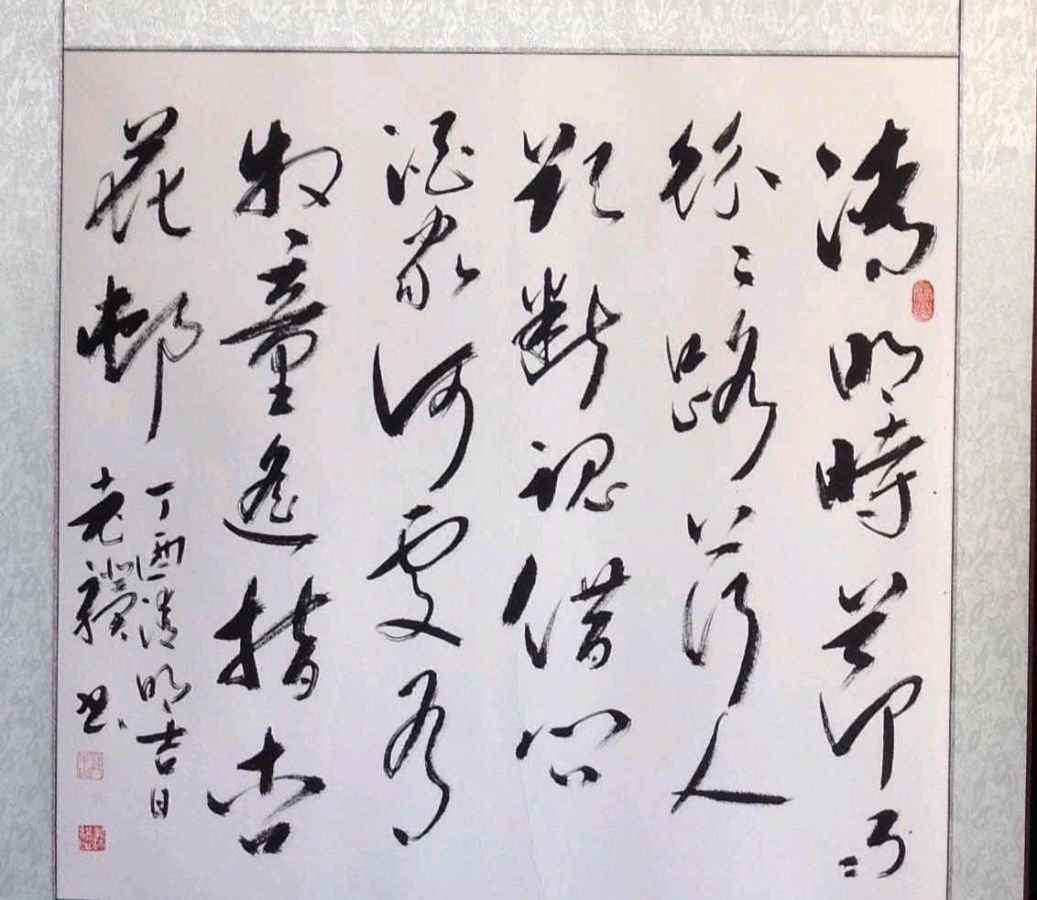 清明時節雨
紛〻路上行人
欲斷魂借問
酒家何處有
牧童遙指杏
花邨
丁酉清明吉日
老 书